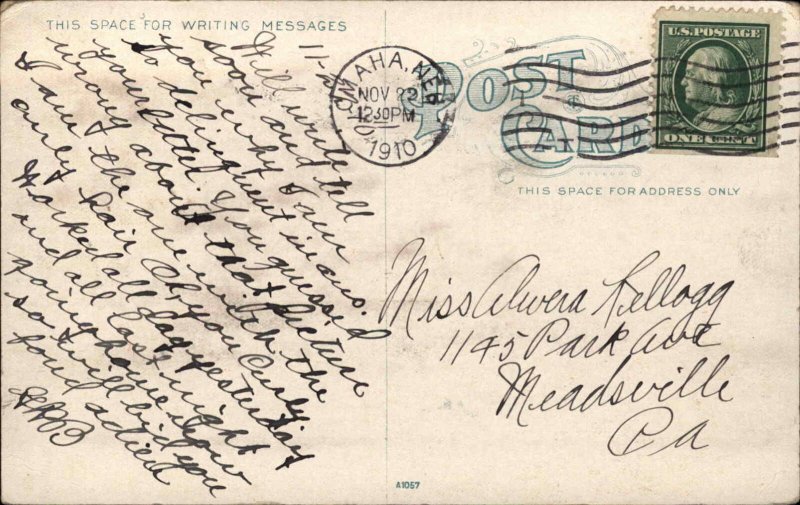 THIS SPACE FOR WRITING MESSAGES
11-
Will write
soon and tell
you why I am
so delinquent in ans.
your letter. You guessed
wrong about that picture
I am the one with the
curly hair Oh, you Curly.
Worked all day yesterday
and all last night
going home now
so will bid you
fond adieu
OMAHA, NEB.
NOV 22
12:30 PM
1910
U.S. POSTAGE
ONE CENT
POST
CARD
THIS SPACE FOR ADDRESS ONLY
Miss Alvera Kellogg
1145 Park Ave
Meadsville
Pa
A1057